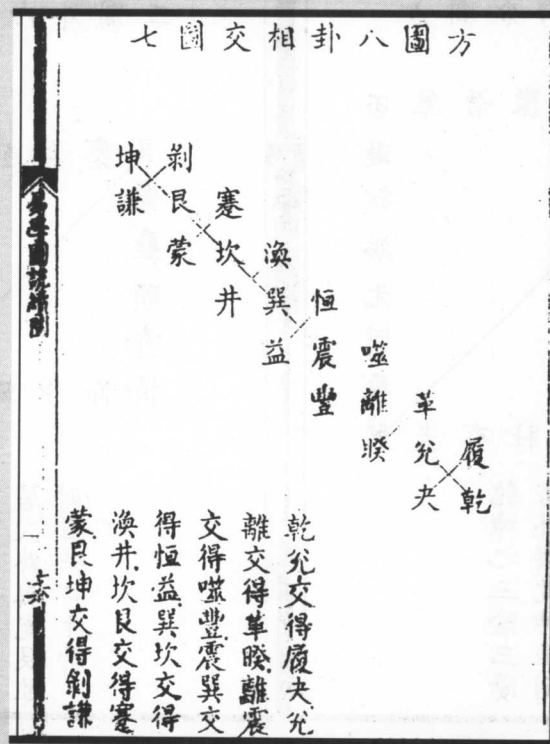 方圖八卦相交圖七
履乾
革兌夬
噬離睽
恒震豐
渙巽益
蹇坎井
剝艮蒙
坤謙
乾兌交得履夬兌
離交得革睽離震
交得噬豐震巽交
得恒益巽坎交得
渙井坎艮交得蹇
蒙艮坤交得剝謙
易學圖說續聞